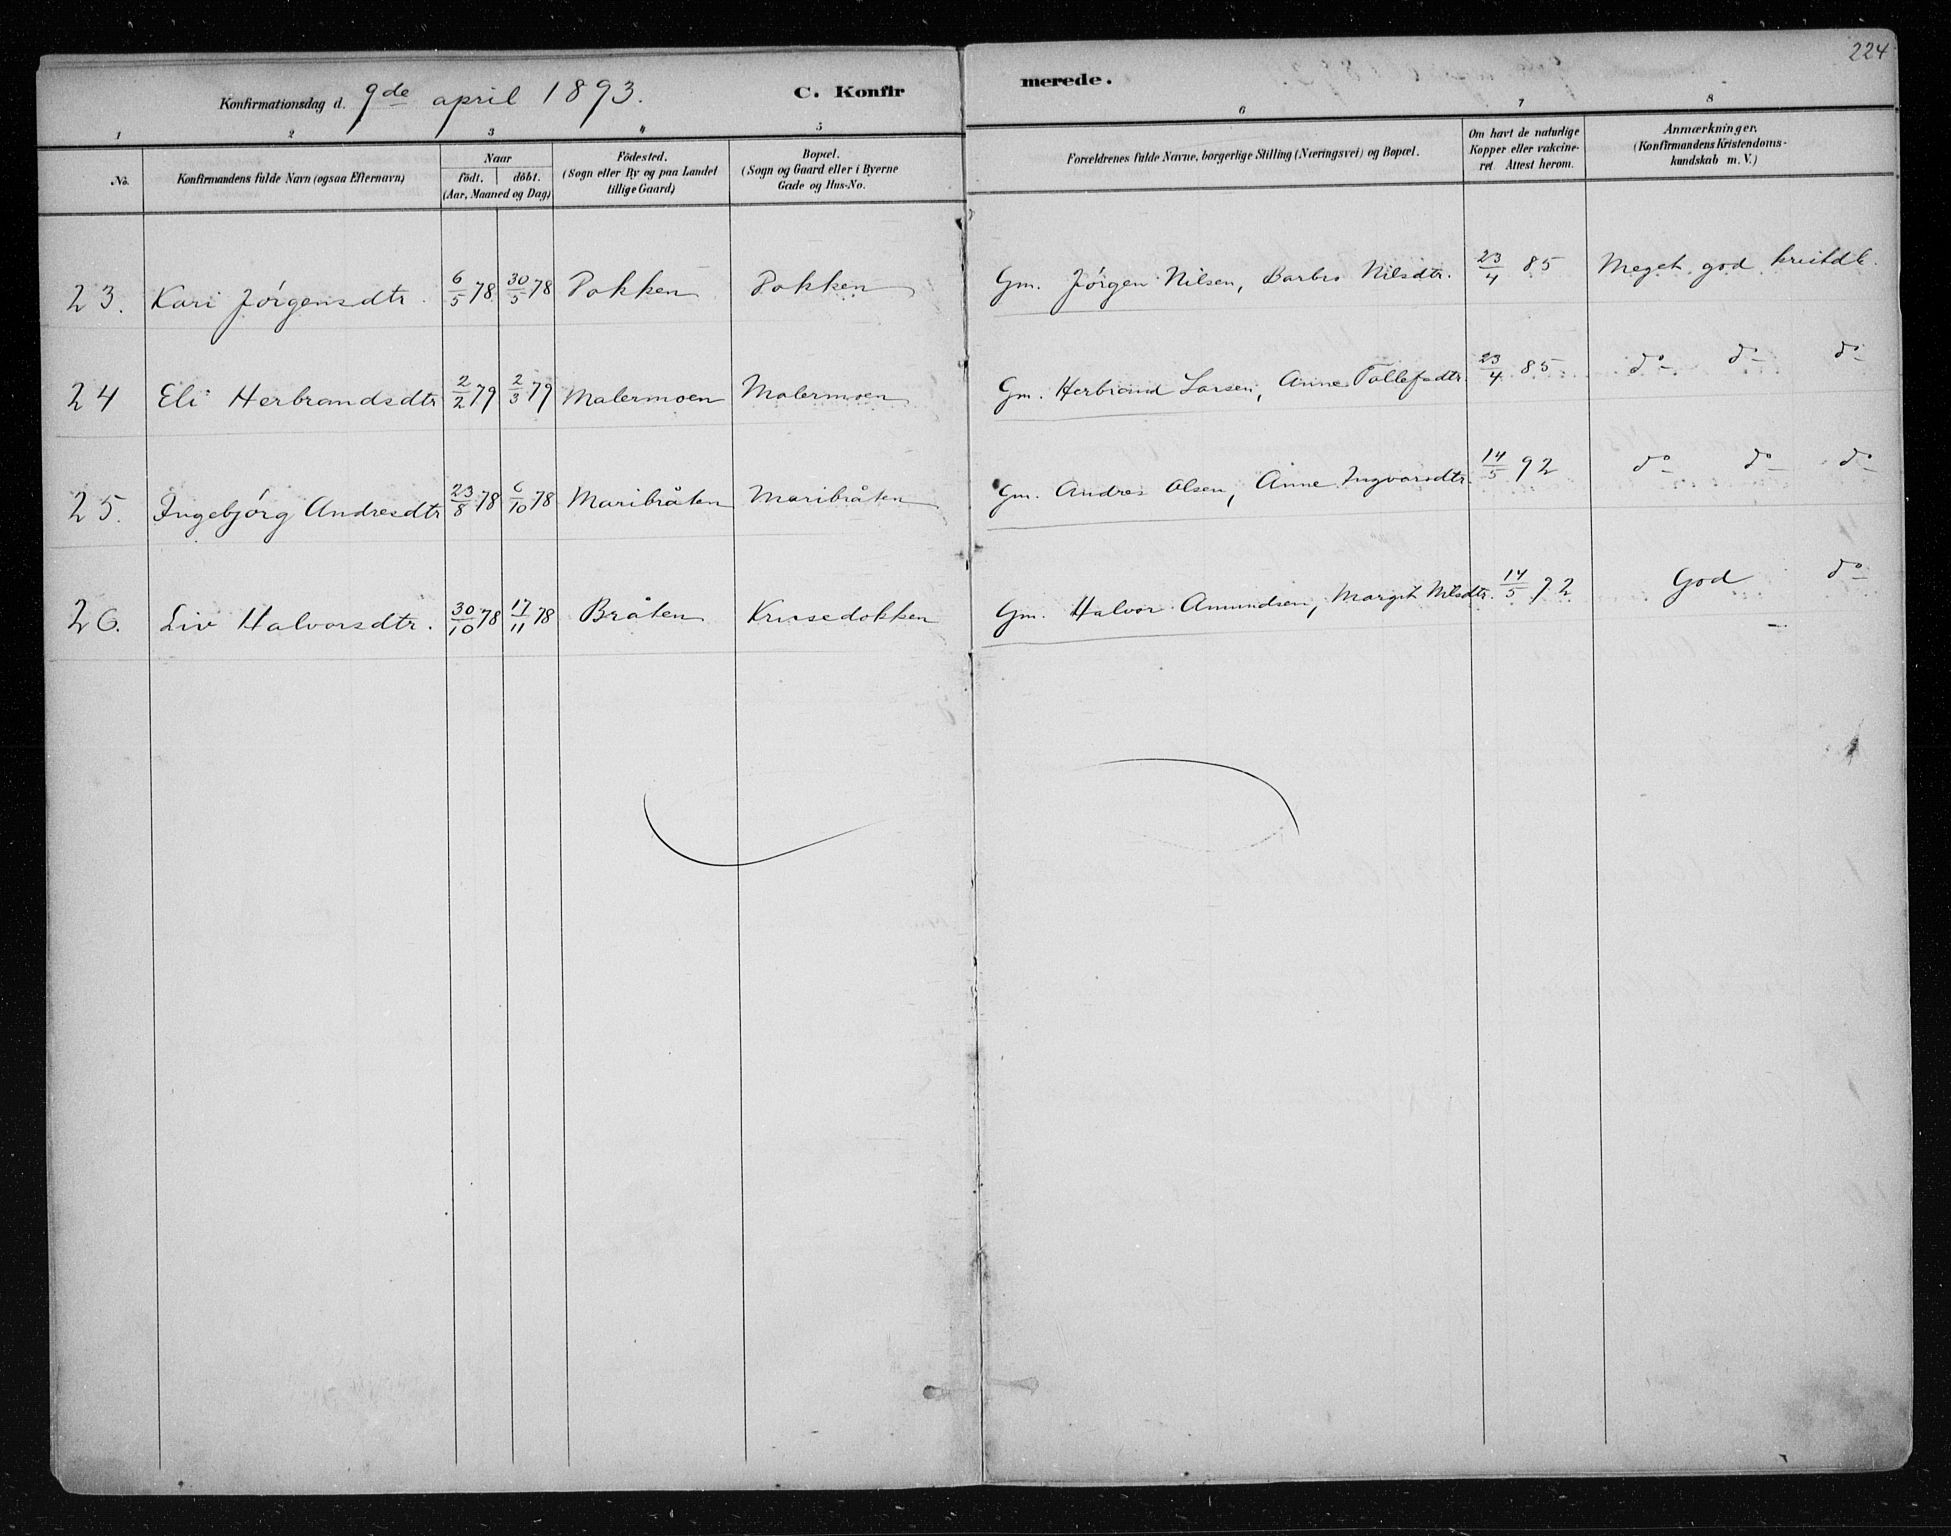 224
Konfirmationsdag d. 9de april 1893. C. Konfirmerede.
1 2 3 4 5 6 7 8
No. Konfirmandens fulde Navn (ogsaa Efternavn) Naar født. døbt. (Aar, Maaned og Dag) Fødested. (Sogn eller By og paa Landet tillige Gaard) Bopæl. (Sogn og Gaard eller i Byerne Gade og Hus-No. Forældrenes fulde Navne, borgerlige Stilling (Næringsvei) og Bopæl. Om havt de naturlige Kopper eller vakcineret. Attest herom. Anmærkninger. (Konfirmandens Kristendomskundskab m. V.)
23. Kari Jørgensdtr. 6/5 78 30/5 78 Pokken Pokken Gm. Jørgen Nilsen, Barbro Nilsdtr. 23/4 85 Meget god kristdk.
24 Eli Herbrandsdtr 2/2 79 2/3 79 Malermoen Malermoen Gm. Herbrand Larsen, Anne Tollefsdtr. 23/4 85 do do do
25. Ingebjørg Andresdtr 23/8 78 6/10 78 Maribråten Maribråten Gm. Andres Olsen, Anne Ingvarsdtr. 14/5 92 do do do
26. Liv Halvorsdtr. 30/10 78 17/11 78 Bråten Krusedokken Gm. Halvor Amundsen, Margit Nilsdtr. 14/5 92 God do